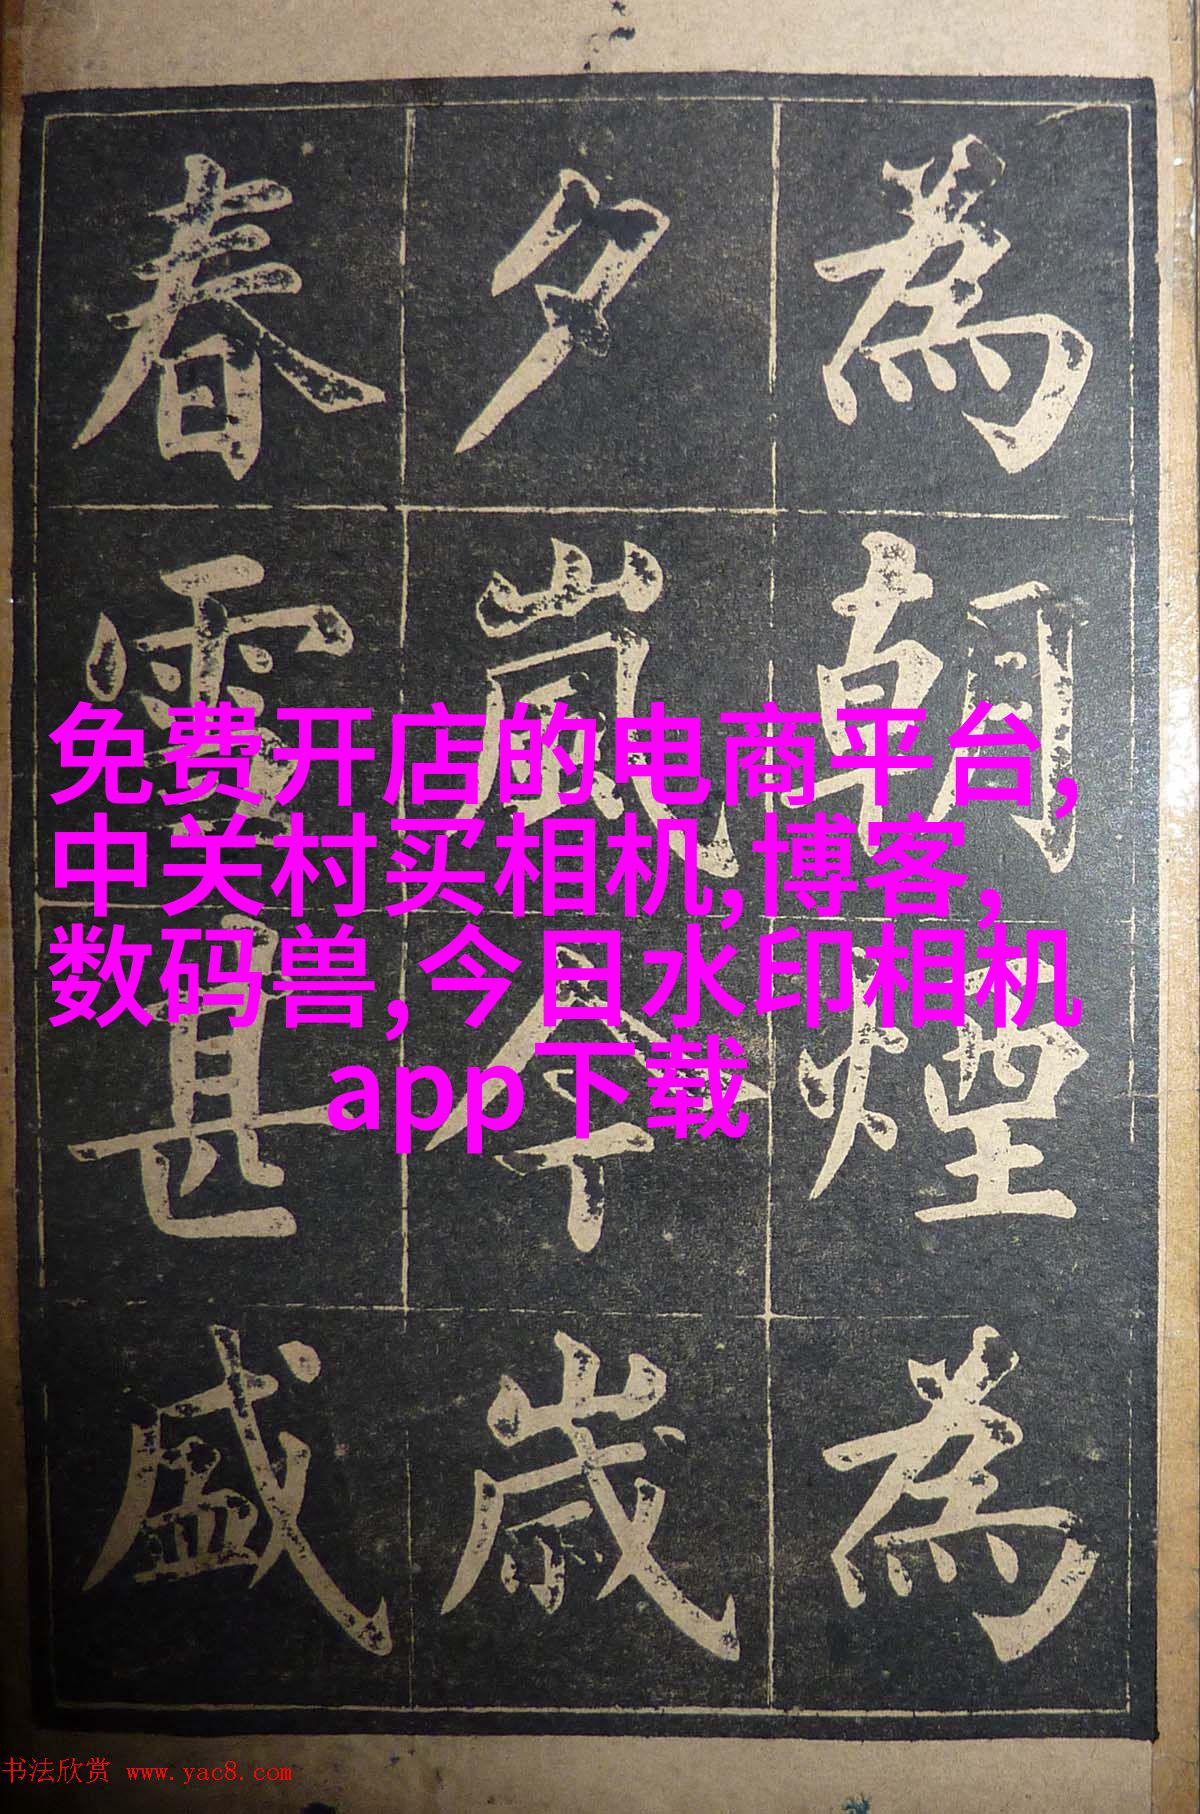 為朝煙為
夕嵐今歲
春雪甚盛
免费开店的电商平台,
中关村买相机,博客,
数码兽,今日水印相机
app下载
书法欣赏 www.yac8.com